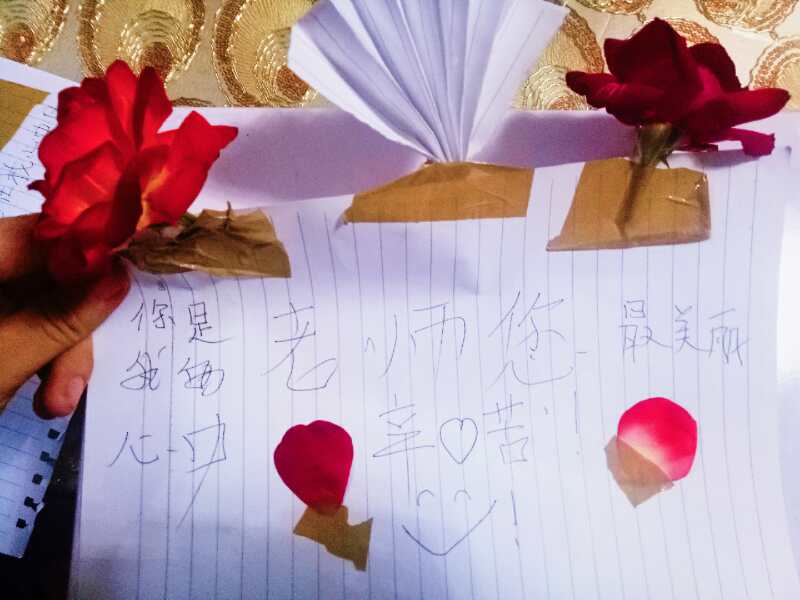 你是
我的
心中
老师您
辛♡苦!
最美丽